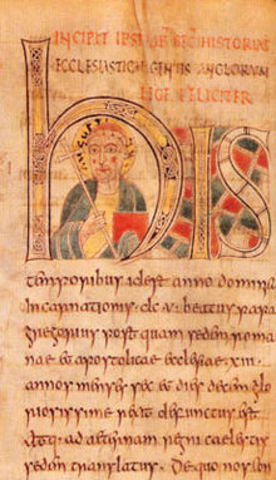 INCIPIT HISTORIAE
ECCLESIASTICAE GENTIS ANGLORUM
LEGE FELICITER
his
temporibus id est anno domini
incarnationis .dc v. beatus papa
gregorius post quam sedem roma
nae et apostolicae ecclesiae .xiii.
annos menses sex et dies decem glo
riosissime rexit defunctus est
Atque ad aeternam regni caelestis
sedem translatus. De quo nos con